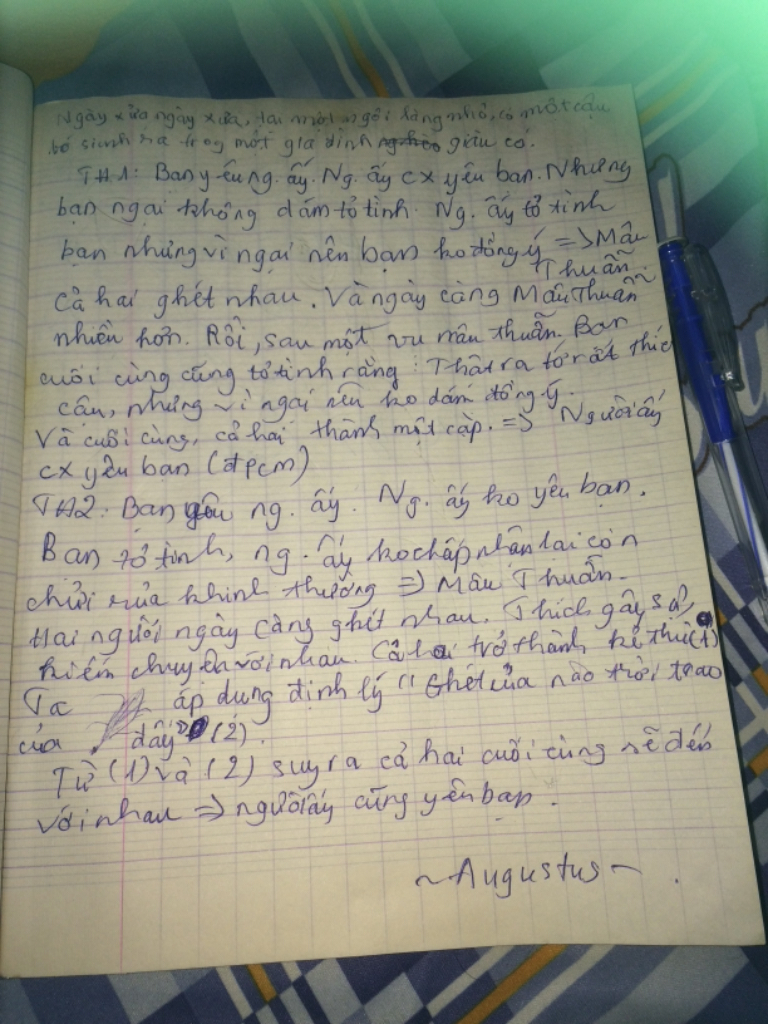 Ngày xửa ngày xưa, tại một ngôi làng nhỏ, có một cậu
bé sinh ra trog một gia đình nghèo giàu có.
TH1: Bạn yêu ng. ấy. Ng. ấy cx yêu bạn. Nhưng
bạn ngại không dám tỏ tình. Ng. ấy tỏ tình
bạn nhưng vì ngại nên bạn ko đồng ý => Mâu
Thuẫn.
Cả hai ghét nhau. Và ngày càng Mâu Thuẫn
nhiều hơn. Rồi, sau một vụ mâu thuẫn. Bạn
cuối cùng cũng tỏ tình rằng: Thật ra tớ rất thíc
cậu, nhưng vì ngại nên ko dám đồng ý.
Và cuối cùng, cả hai thành một cặp. => Người ấy
cx yêu bạn (đpcm)
TH2: Bạn yêu ng. ấy. Ng. ấy ko yêu bạn.
Bạn tỏ tình, ng. ấy ko chấp nhận lại còn
chửi rủa khinh thường => Mâu Thuẫn.
Hai người ngày càng ghét nhau. Thích gây sự,
kiếm chuyện với nhau. Cả hai trở thành kẻ thù (1)
Ta áp dụng định lý "Ghét của nào trời trao
của đấy" (2).
Từ (1) và (2) suy ra cả hai cuối cùng sẽ đến
với nhau => người ấy cũng yêu bạn.
~Augustus~